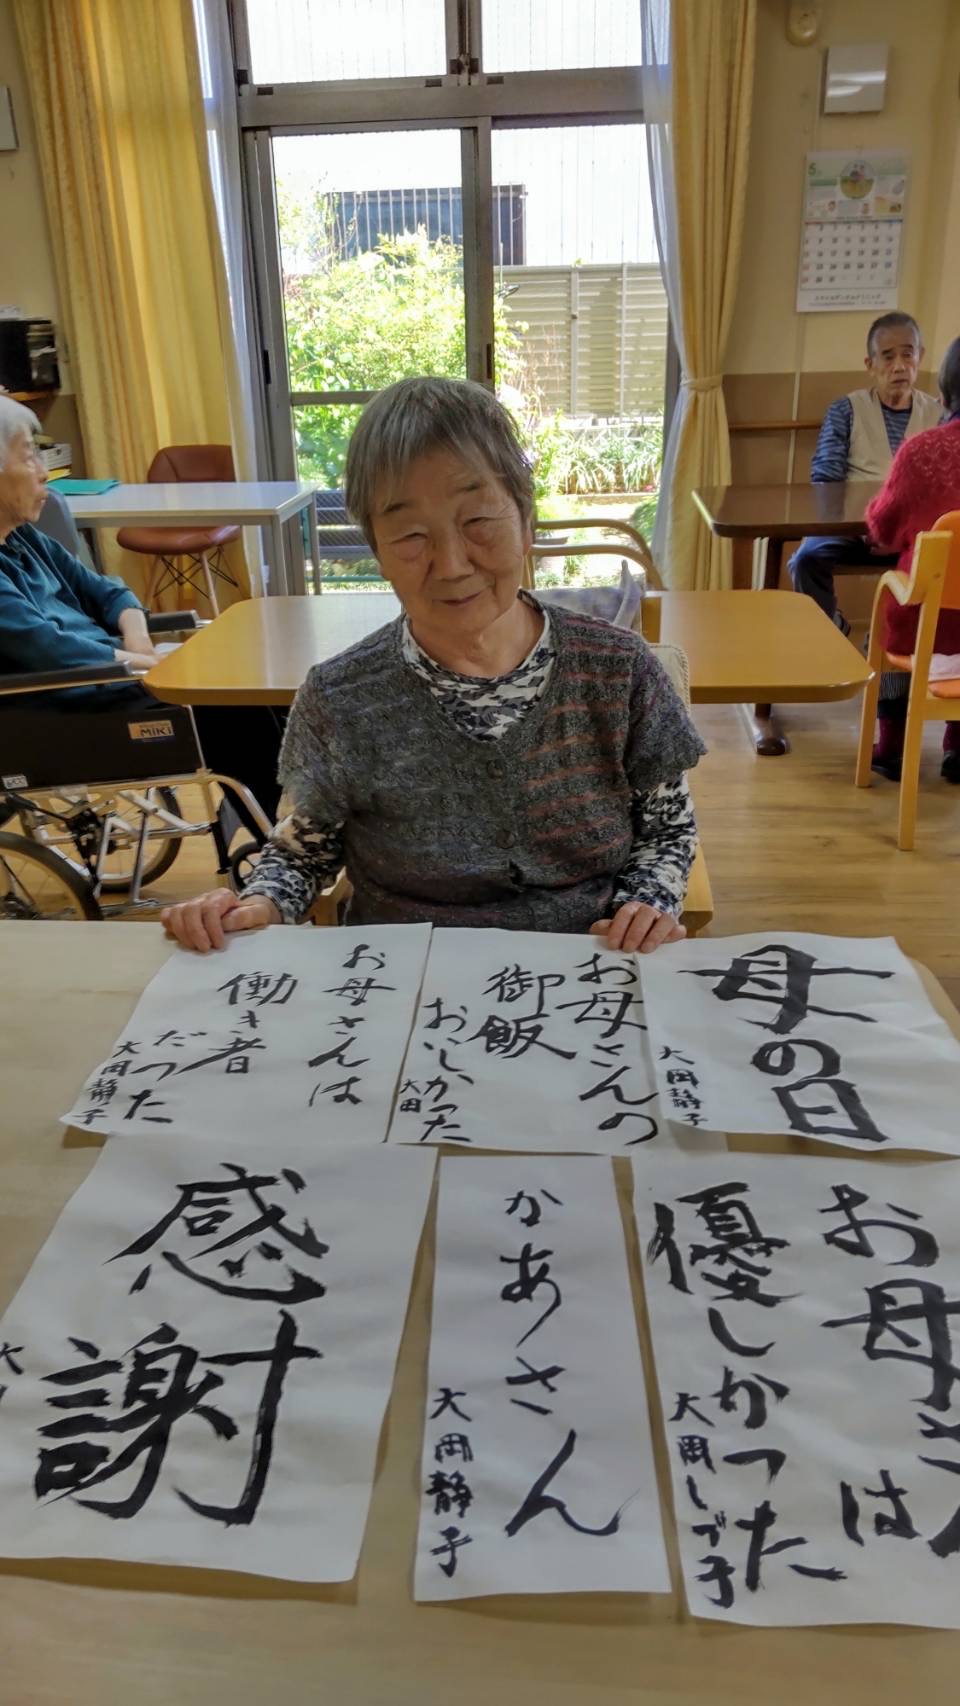 母の日
大岡静子
お母さんの
御飯
おいしかった
大岡
お母さんは
働き者
だった
大岡静子
お母さんは
優しかった
大岡しづ子
かあさん
大岡静子
感謝
大
MiKi
5